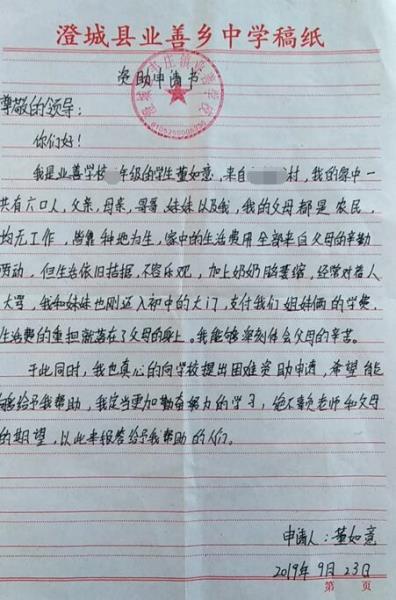 澄城县业善乡中学稿纸
资助申请书
尊敬的领导：
你们好！
我是业善学校 年级的学生董如意，来自 村，我的家中一
共有六口人，父亲，母亲，哥哥，妹妹以及我，我的父母都是农民，
均无工作，皆靠种地为生，家中的生活费用全部来自父母的辛勤
劳动，但生活依旧拮据，不容乐观，加上奶奶脑萎缩，经常对着人
大骂，我和妹妹也刚迈入初中的大门，支付我们姐妹俩的学费，
生活费的重担就落在了父母的身上。我能够深刻体会父母的辛苦。
于此同时，我也真心的向学校提出困难资助申请，希望能
够给予我帮助，我定当更加勤奋努力的学习，绝不辜负老师和父母
的期望，以此来报答给予我帮助的人们。
申请人：董如意
2019年9月23日
第 页